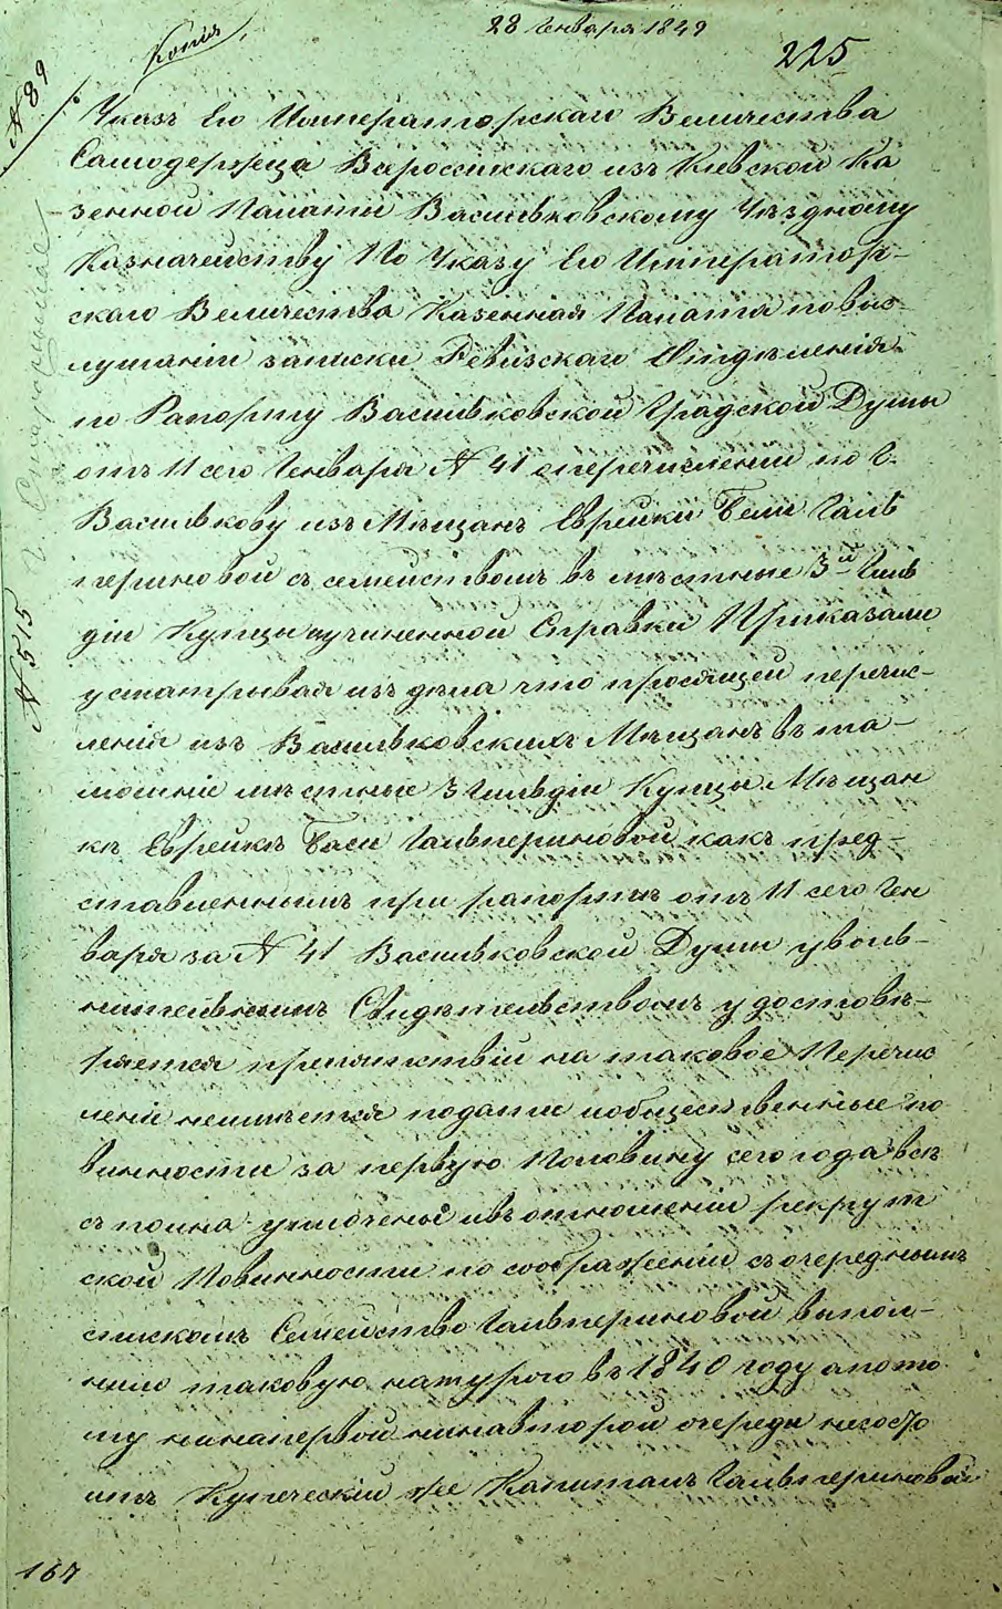 28 Генваря 1849
Копія
225
№ 89
Указъ Его Императорскаго Величества
Самодержца Всероссійскаго изъ Кіевской Ка
зенной Палаты Васильковскому Уѣздному
Казначейству По Указу Его Император-
скаго Величества Казенная Палата по выс-
лушаніи записки Ревизскаго Отдѣленія
по Рапорту Васильковской Градской Думы
отъ 11 сего Генваря № 41 о перечисленіи по г.
Василькову изъ Мѣщанъ Еврейки Баси Галь
периновой съ семействомъ въ мѣстные 3й Гиль
діи Купцы и учиненной Справки Приказали
усматривая изъ дѣла что просящей перечис-
ленія изъ Васильковскихъ Мѣщанъ въ та-
мошніе мѣстные 3 Гильдіи Купцы Мѣщан
кѣ Еврейкѣ Баси Гальпериновой какъ пред-
ставленнымъ при рапортѣ отъ 11 сего Ген
варя за № 41 Васильковской Думы уволь-
нительнымъ Свидѣтельствомъ удостовѣ-
ряется препятствій на таковое Перечис
леніе неимѣется подати и общественные по
винности за первую Половину сего года всѣ
сполна уплочены и въ отношеніи рекрут
ской Повинности по соображеніи съ очереднымъ
спискомъ Семейство Гальпериновой выпол-
нило таковую натурою въ 1840 году а пото
му ни на первой ни на второй очереди несосто
итъ Купеческій же Капиталъ Гальпериновой
№ 515
167